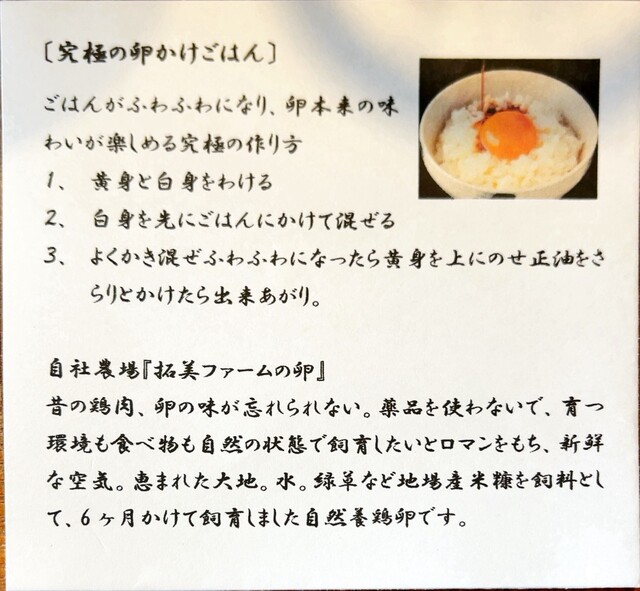 〔究極の卵かけごはん〕
ごはんがふわふわになり、卵本来の味
わいが楽しめる究極の作り方
1、 黄身と白身をわける
2、 白身を先にごはんにかけて混ぜる
3、 よくかき混ぜふわふわになったら黄身を上にのせ正油をさ
らりとかけたら出来あがり。
自社農場『拓美ファームの卵』
昔の鶏肉、卵の味が忘れられない。薬品を使わないで、育つ
環境も食べ物も自然の状態で飼育したいとロマンをもち、新鮮
な空気。恵まれた大地。水。緑草など地場産米糠を飼料とし
て、6ヶ月かけて飼育しました自然養鶏卵です。